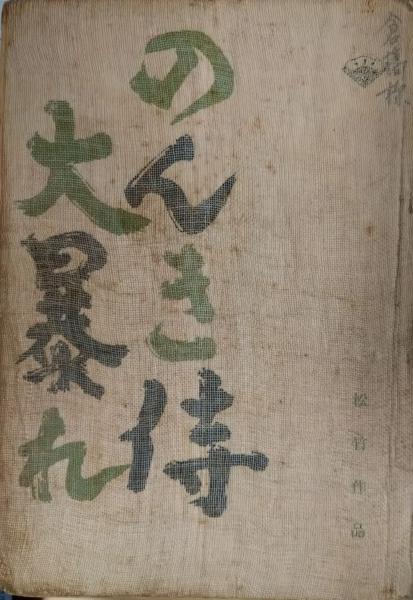 のんき侍
大暴れ
松竹作品